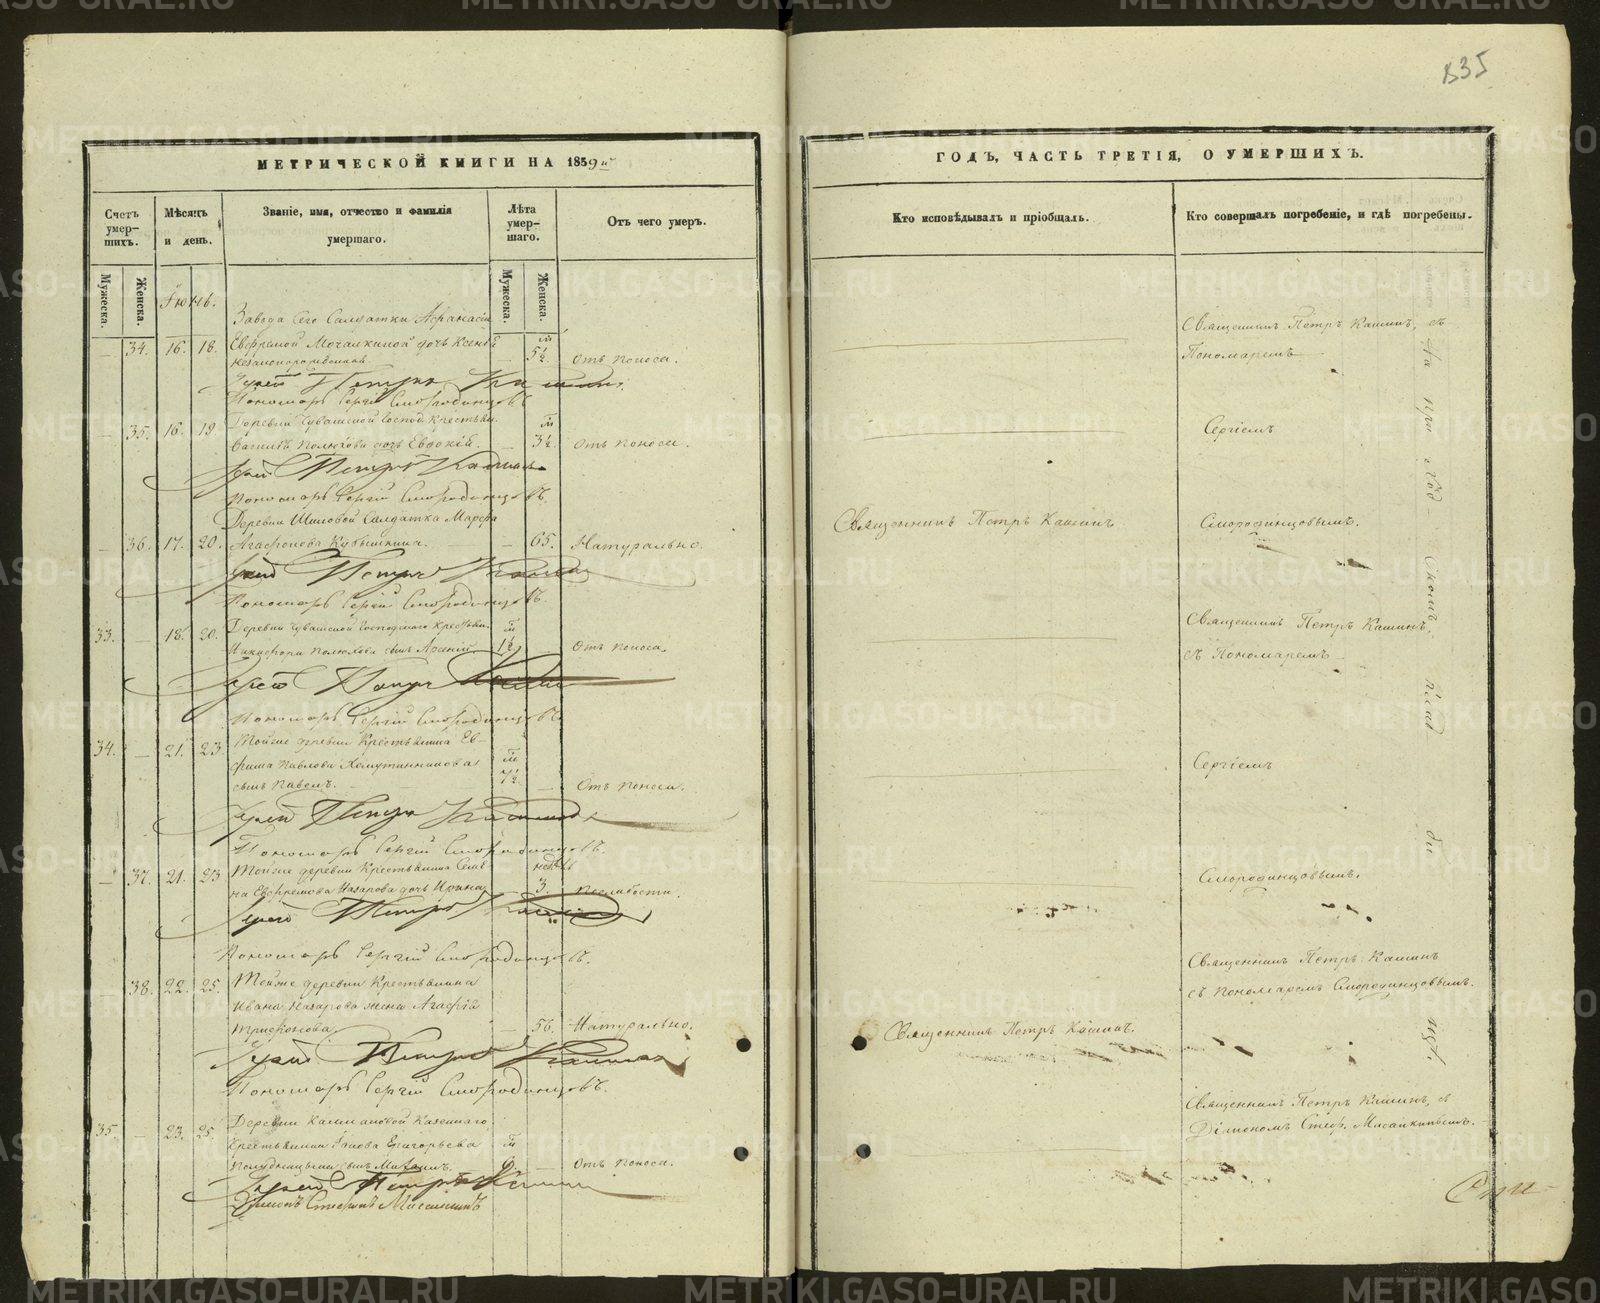 135
МЕТРИЧЕСКОЙ КНИГИ НА 1859й
Счетъ умер-шихъ.
Мѣсяцъ и день.
Званіе, имя, отчество и фамилія умершаго.
Лѣта умер-шаго.
Отъ чего умеръ.
Мужеска.
Женска.
Мужеска.
Женска.
Іюнь.
Завода Сего Салдатки Афанасіи
34. 16. 18. Евфремой Мочалкиной дочь Ксенія
незаконорожденная. 5½ Отъ поноса.
Іерей Петръ Кашинъ
Пономарь Сергій Смородинцовъ
Деревни Чувашской Господ. Крестьян.
35. 16. 19
дочь Евдокія. 3½ Отъ поноса.
Іерей Петръ Кашинъ
Пономарь Сергій Смородинцовъ.
Деревни Шиловой Салдатка Марфа
36. 17. 20. Агафонова Кубышкина. 65. Натурально.
Іерей Петръ Кашинъ
Пономарь Сергій Смородинцовъ.
Деревни Чувашской Господскаго Крестьян.
33. 18. 20. Никифора сынъ Арсеній 1½ Отъ поноса.
Іерей Петръ Кашинъ
Пономарь Сергій Смородинцовъ
34. 21. 23. Тойже деревни Крестьянина Ев-
фима Павлова
сынъ Павелъ. 7½ Отъ поноса.
Іерей Петръ Кашинъ
Пономарь Сергій Смородинцовъ.
37. 21. 23 Тойже деревни Крестьянина Семе-
на Евфремова Назарова дочь Ирина 3. недѣль
Іерей Петръ Кашинъ
Пономарь Сергій Смородинцовъ.
38. 22. 25. Тойже деревни Крестьянина
Ивана Назарова жена Агафія
Трифонова. 56. Натурально.
Іерей Петръ Кашинъ
Пономарь Сергій Смородинцовъ.
35. 23. 25. Деревни Казеннаго
Крестьянина Егорьева
сынъ Отъ поноса.
Іерей Петръ Кашинъ
Діаконъ Стефанъ
ГОДЪ, ЧАСТЬ ТРЕТІЯ, О УМЕРШИХЪ.
Кто исповѣдывалъ и пріобщалъ.
Кто совершалъ погребеніе, и гдѣ погребены.
Священникъ Петръ Кашинъ, съ
Пономаремъ
Сергіемъ
Священникъ Петръ Кашинъ
Смородинцовымъ.
Священникъ Петръ Кашинъ
съ Пономаремъ
Сергіемъ
Смородинцовымъ.
Священникъ Петръ Кашинъ
съ пономаремъ Смородинцовымъ.
Священникъ Петръ Кашинъ.
Священникъ Петръ Кашинъ, съ
Діакономъ Стеф.
На при ход- скомъ клад би щѣ.
METRIKI.GASO-URAL.RU